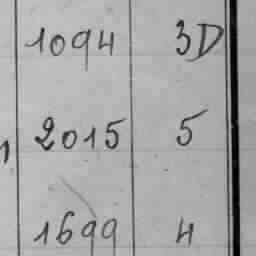 1094 3D
2015 5
1699 4